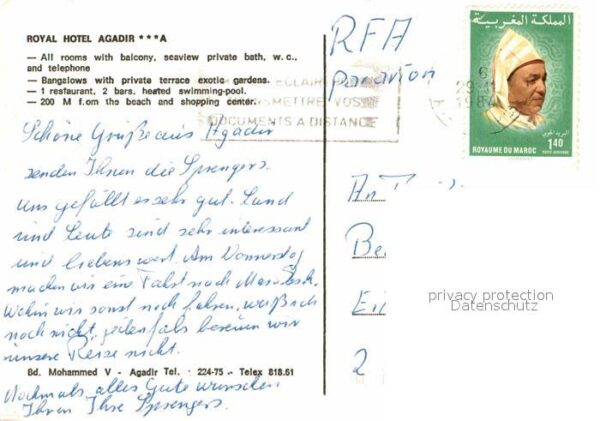 ROYAL HOTEL AGADIR ***A
— All rooms with balcony, seaview private bath, w. c.,
and telephone
— Bangalows with private terrace exotic gardens.
— 1 restaurant, 2 bars, heated swimming-pool.
— 200 M f.om the beach and shopping center.
Schöne Grüße aus Agadir
senden Ihnen die Sprengers.
Uns gefällt es sehr gut. Land
und Leute sind sehr interessant
und liebenswert. Am Donnerstag
machen wir eine Fahrt nach
Wohin wir sonst noch fahren, weiß ich
noch nicht, jedenfalls bereuen wir
unsere Reise nicht.
Bd. Mohammed V - Agadir Tel. : 224-75 - Telex 818.61
Nochmals alles Gute wünschen
Ihnen Ihre Sprengers.
RFA
par avion
ECLAIR
METTRE VOS
DOCUMENTS A DISTANCE
المملكة المغربية
البريد الجوي
1,40
ROYAUME DU MAROC
POSTE AERIENNE
An
Be
Ei
2
privacy protection
Datenschutz